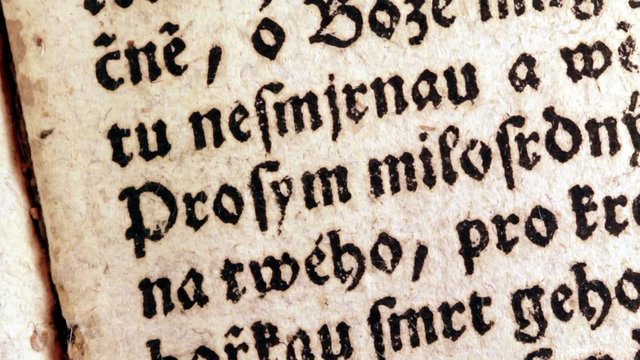 čně, o Bože
tu neſmjrnau a wě
Proſym miloſrdný
na twého, pro kr
hořkau ſmrt geho